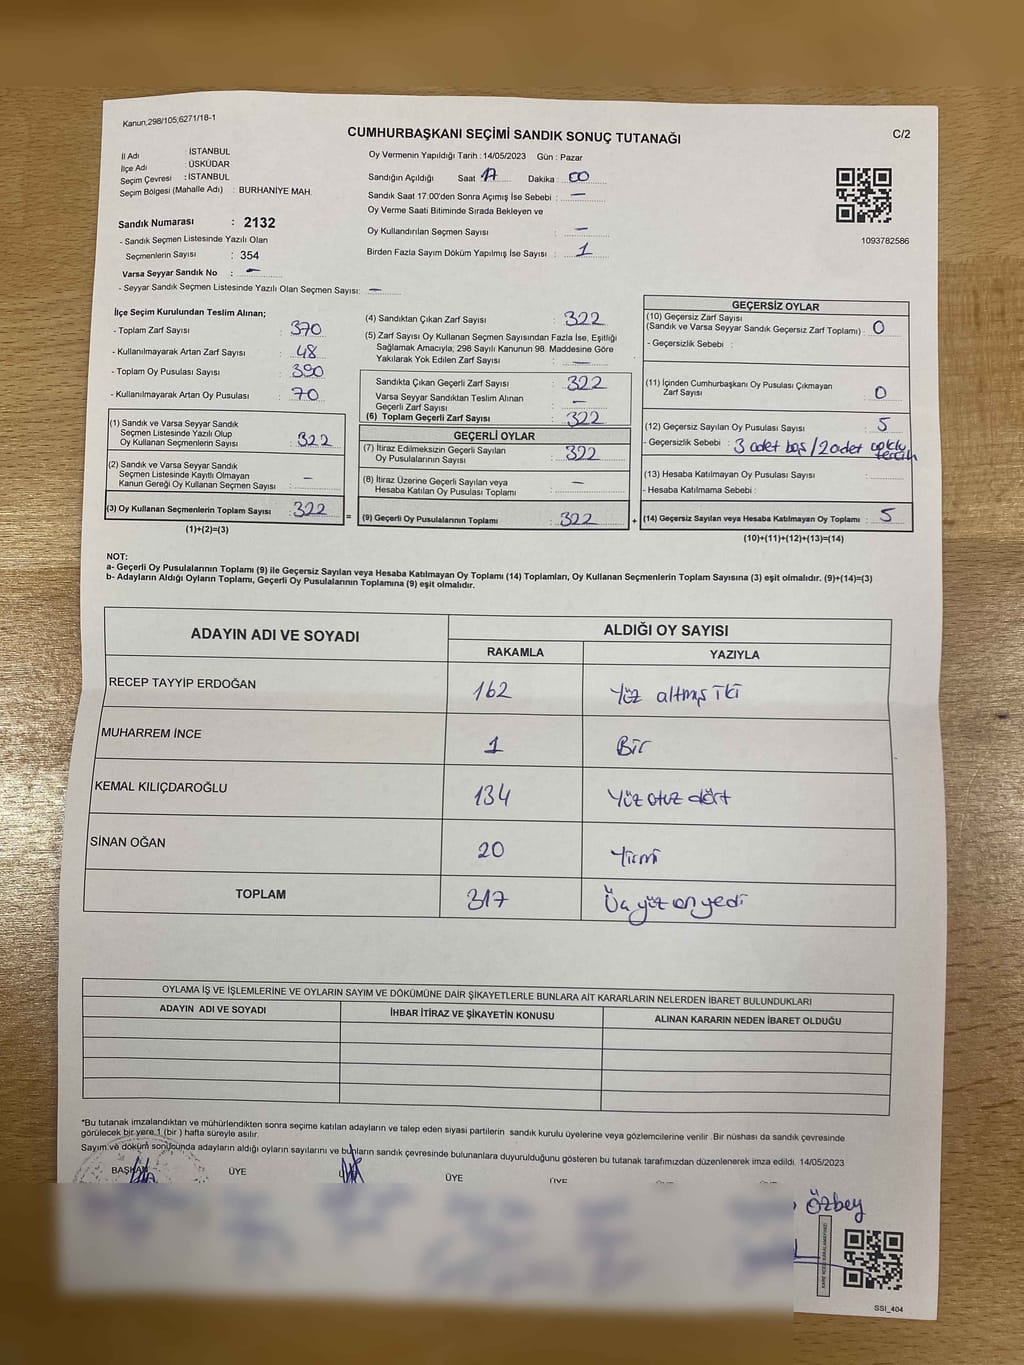 Kanun,298/105,6271/18-1
CUMHURBAŞKANI SEÇİMİ SANDIK SONUÇ TUTANAĞI
C/2
İl Adı : İSTANBUL
İlçe Adı : ÜSKÜDAR
Seçim Çevresi : İSTANBUL
Seçim Bölgesi (Mahalle Adı) : BURHANİYE MAH.
Sandık Numarası : 2132
- Sandık Seçmen Listesinde Yazılı Olan
Seçmenlerin Sayısı : 354
Varsa Seyyar Sandık No : -
- Seyyar Sandık Seçmen Listesinde Yazılı Olan Seçmen Sayısı: -
Oy Vermenin Yapıldığı Tarih : 14/05/2023 Gün : Pazar
Sandığın Açıldığı Saat 17 Dakika : 00
Sandık Saat 17:00'den Sonra Açımış İse Sebebi : -
Oy Verme Saati Bitiminde Sırada Bekleyen ve
Oy Kullandırılan Seçmen Sayısı : -
Birden Fazla Sayım Döküm Yapılmış İse Sayısı : 1
1093782586
İlçe Seçim Kurulundan Teslim Alınan;
- Toplam Zarf Sayısı : 370
- Kullanılmayarak Artan Zarf Sayısı : 48
- Toplam Oy Pusulası Sayısı : 390
- Kullanılmayarak Artan Oy Pusulası : 70
(1) Sandık ve Varsa Seyyar Sandık
Seçmen Listesinde Yazılı Olup
Oy Kullanan Seçmenlerin Sayısı : 322
(2) Sandık ve Varsa Seyyar Sandık
Seçmen Listesinde Kayıtlı Olmayan
Kanun Gereği Oy Kullanan Seçmen Sayısı : -
(3) Oy Kullanan Seçmenlerin Toplam Sayısı : 322
(1)+(2)=(3)
=
(4) Sandıktan Çıkan Zarf Sayısı : 322
(5) Zarf Sayısı Oy Kullanan Seçmen Sayısından Fazla İse, Eşitliği
Sağlamak Amacıyla; 298 Sayılı Kanunun 98. Maddesine Göre
Yakılarak Yok Edilen Zarf Sayısı : -
Sandıkta Çıkan Geçerli Zarf Sayısı : 322
Varsa Seyyar Sandıktan Teslim Alınan
Geçerli Zarf Sayısı : -
(6) Toplam Geçerli Zarf Sayısı : 322
GEÇERLİ OYLAR
(7) İtiraz Edilmeksizin Geçerli Sayılan
Oy Pusulalarının Sayısı : 322
(8) İtiraz Üzerine Geçerli Sayılan veya
Hesaba Katılan Oy Pusulası Toplamı : -
(9) Geçerli Oy Pusulalarının Toplamı : 322
+
GEÇERSİZ OYLAR
(10) Geçersiz Zarf Sayısı
(Sandık ve Varsa Seyyar Sandık Geçersiz Zarf Toplamı) : 0
- Geçersizlik Sebebi :
(11) İçinden Cumhurbaşkanı Oy Pusulası Çıkmayan
Zarf Sayısı : 0
(12) Geçersiz Sayılan Oy Pusulası Sayısı : 5
- Geçersizlik Sebebi : 3 adet boş / 2 adet çoklu
tercih
(13) Hesaba Katılmayan Oy Pusulası Sayısı :
- Hesaba Katılmama Sebebi :
(14) Geçersiz Sayılan veya Hesaba Katılmayan Oy Toplamı : 5
(10)+(11)+(12)+(13)=(14)
NOT:
a- Geçerli Oy Pusulalarının Toplamı (9) ile Geçersiz Sayılan veya Hesaba Katılmayan Oy Toplamı (14) Toplamları, Oy Kullanan Seçmenlerin Toplam Sayısına (3) eşit olmalıdır. (9)+(14)=(3)
b- Adayların Aldığı Oyların Toplamı, Geçerli Oy Pusulalarının Toplamına (9) eşit olmalıdır.
ADAYIN ADI VE SOYADI
ALDIĞI OY SAYISI
RAKAMLA YAZIYLA
RECEP TAYYİP ERDOĞAN 162 Yüz altmış iki
MUHARREM İNCE 1 Bir
KEMAL KILIÇDAROĞLU 134 Yüz otuz dört
SİNAN OĞAN 20 Yirmi
TOPLAM 317 Üç yüz on yedi
OYLAMA İŞ VE İŞLEMLERİNE VE OYLARIN SAYIM VE DÖKÜMÜNE DAİR ŞİKAYETLERLE BUNLARA AİT KARARLARIN NELERDEN İBARET BULUNDUKLARI
ADAYIN ADI VE SOYADI İHBAR İTİRAZ VE ŞİKAYETİN KONUSU ALINAN KARARIN NEDEN İBARET OLDUĞU
*Bu tutanak imzalandıktan ve mühürlendikten sonra seçime katılan adayların ve talep eden siyasi partilerin sandık kurulu üyelerine veya gözlemcilerine verilir. Bir nüshası da sandık çevresinde
görülecek bir yere 1 (bir ) hafta süreyle asılır.
Sayım ve döküm sonucunda adayların aldığı oyların sayılarını ve bunların sandık çevresinde bulunanlara duyurulduğunu gösteren bu tutanak tarafımızdan düzenlenerek imza edildi. 14/05/2023
BAŞKAN ÜYE ÜYE ÜYE
Özbey
SSİ_404